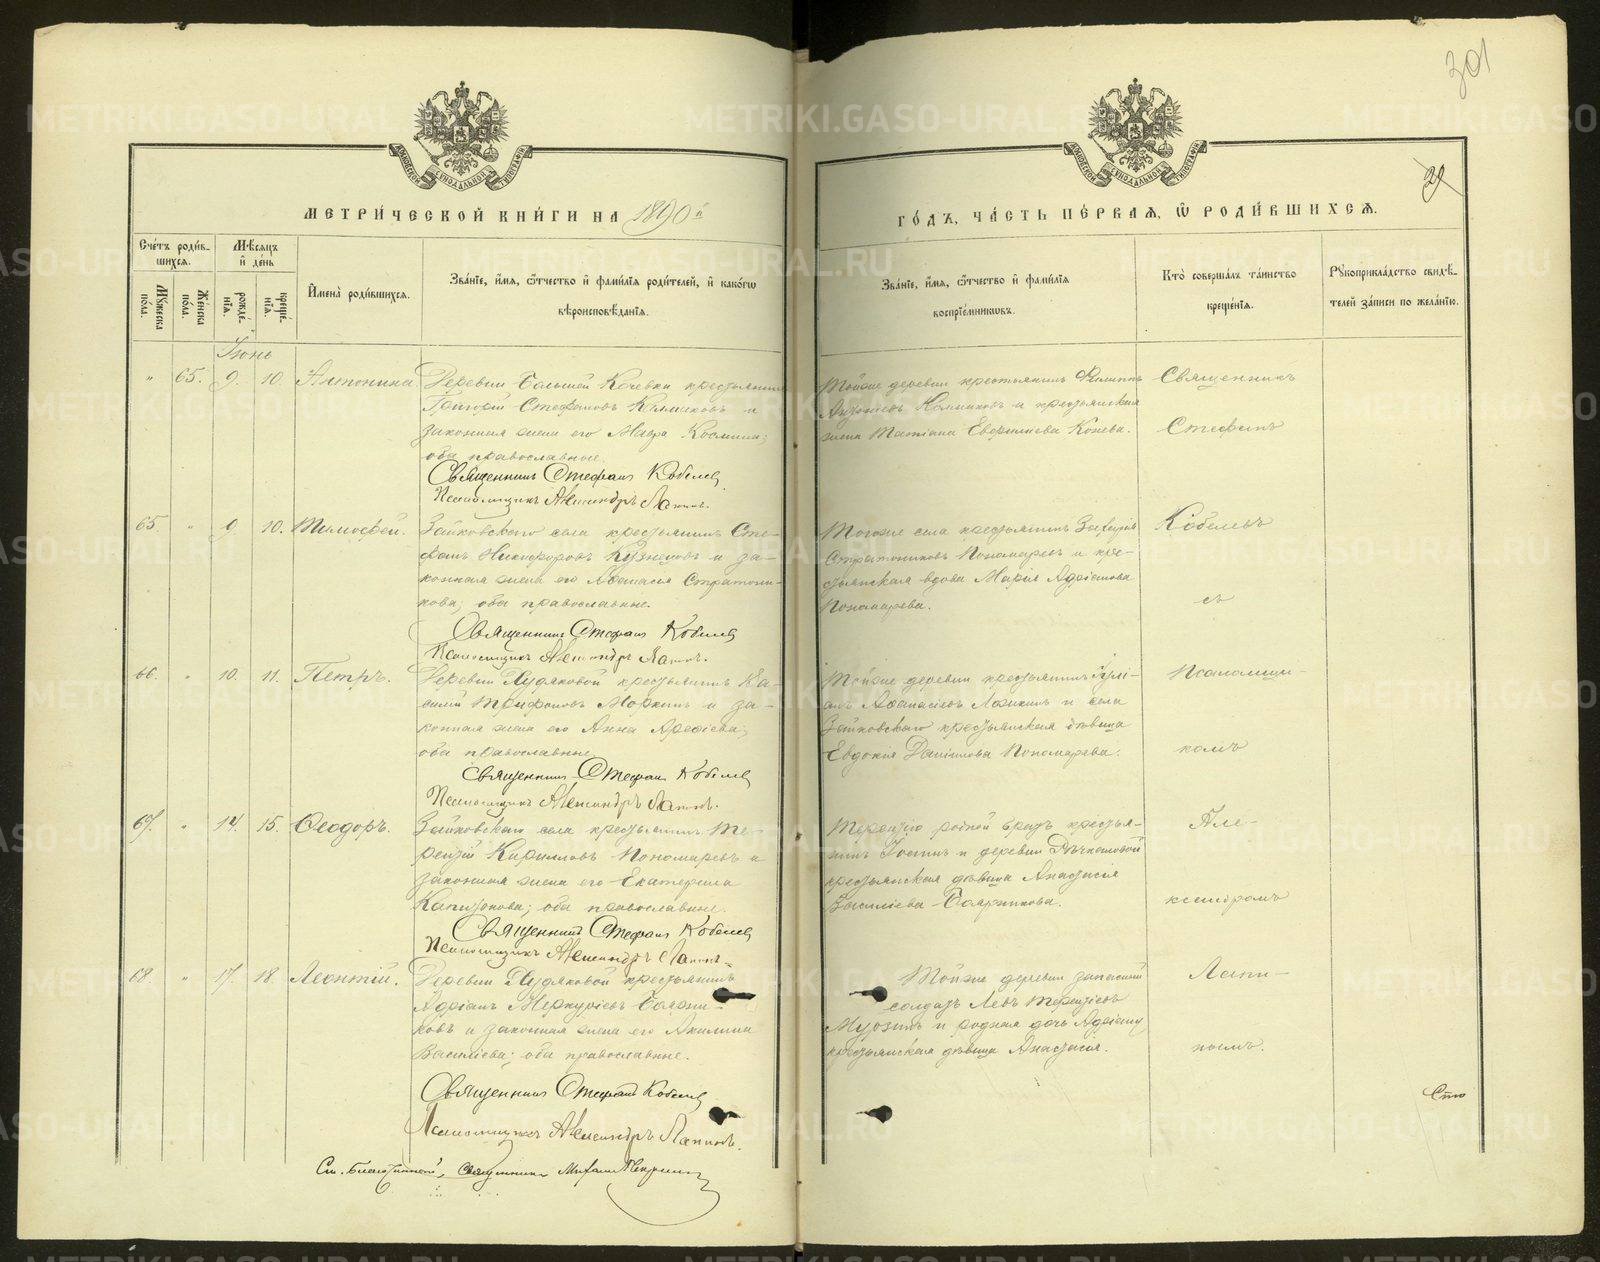 301
29
МЕТРИ́ЧЕСКОЙ КНИ́ГИ НА 1890й
ГО́ДЪ, ЧА́СТЬ ПЕ́РВАЯ, Ѿ РОДИ́ВШИХСЯ.
Сче́тъ роди́в-
шихся.
Му́жеска по́ла.
Же́нска по́ла.
Мѣ́сяцъ и де́нь
рожде́-
нїя.
креще́-
нїя.
И҆мена̀ роди́вшихся.
Зва́нїе, и҆́мя, ѻ҆́тчество и҆ фами́лїя роди́телей, и҆ како́гѡ
вѣроисповѣ́данїя.
Зва́нїе, и҆́мя, ѻ҆́тчество и҆ фами́лїя
воспрїе́мниковъ.
Кто̀ соверша́лъ та́инство
креще́нїя.
Рꙋкоприкла́дство свидѣ́-
телей за́писи по жела́нїю.
Іюнь
" 65. 9. 10. Антонина
Деревни Большей Кочевки крестьянинъ
Григорій Стефановъ Калмаковъ и
законная жена его Мавра Космина;
оба православные.
Священникъ Стефанъ Кобелев
Псаломщикъ Александръ Лапинъ.
Тойже деревни крестьянинъ Филиппъ
Калмаковъ и крестьянская
жена Татіана Конева.
Священникъ
Стефанъ
65 " 9 10. Тимофей.
Зайковскаго села крестьянинъ Сте-
фанъ Никифоровъ Кузнецовъ и за-
конная жена его Афанасія Стратони-
кова; оба православные.
Священникъ Стефанъ Кобелев
Псаломщикъ Александръ Лапин.
Тогоже села крестьянинъ
Стратониковъ Пономаревъ и кре-
стьянская вдова Марія Адріанова
Пономарева.
Кобелевъ
съ
66. " 10. 11. Петръ.
Деревни Худяковой крестьянинъ Ва-
силій Трифоновъ Моркинъ и за-
конная жена его Анна Арефіева;
оба православные.
Священникъ Стефанъ Кобелев
Псаломщикъ Александръ Лапин.
Тойже деревни крестьянинъ Іулі-
анъ Афанасіевъ и села
Зайковскаго крестьянская дѣвица
Евдокія Даніилова Пономарева.
Псаломщи-
комъ
67. " 14. 15. Ѳеодоръ.
Зайковскаго села крестьянинъ Те-
рентій Кирилловъ Пономаревъ и
законная жена его Екатерина
Капитонова; оба православные.
Священникъ Стефанъ Кобелев
Псаломщикъ Александръ Лапинъ
Терентію родной братъ крестья-
нинъ Іоаннъ и деревни Рѣчкаловой
крестьянская дѣвица Анастасія
Василіева Бояринкова.
Але-
ксандромъ
68 " 17. 18. Леонтій.
Деревни Худяковой крестьянинъ
Адріанъ Меркуріевъ
и законная жена его Акилина
Василіева; оба православные.
Священникъ Стефанъ Кобелев
Псаломщикъ Александръ Лапинъ.
Тойже деревни запасный
солдатъ Левъ Терентіевъ
и родная дочь Адріану
крестьянская дѣвица Анастасія.
Лапи-
нымъ.
Сто
См. Благочинный, священникъ Михаилъ
METRIKI.GASO-URAL.RU